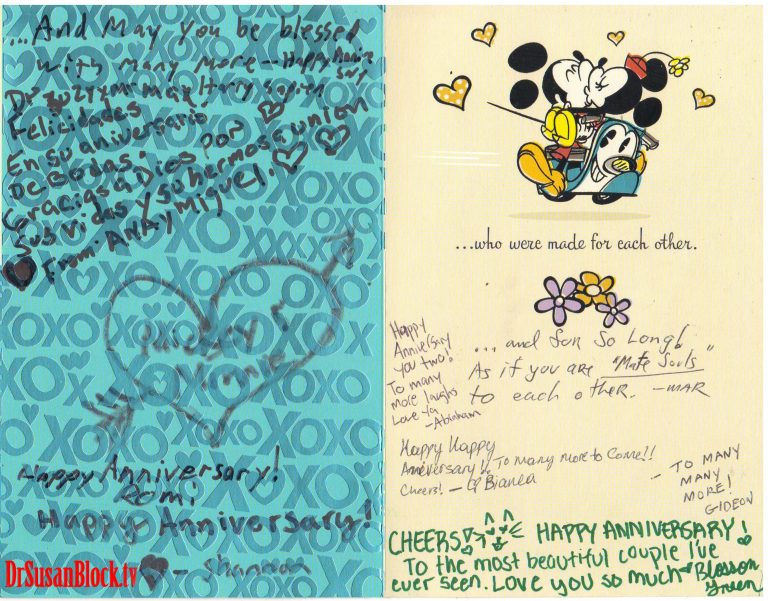 ...And May you be blessed
with many more - Happy Anniversary
Felicidades
En su aniversario
De Bodas
Gracias a Dios por
Sus vidas y su hermosa union
From: ANA y Miguel.
Happy Anniversary!
Romi
Happy Anniversary!
- Shannon
DrSusanBlock.tv
...who were made for each other.
Happy
Anniversary
you two!
To many
more laughs
Love ya
- Abraham
... and for so Long!
As if you are "Mate Souls"
to each other. - MAR
Happy Happy
Anniversary!! To many more to Come!!
Cheers! - Bianca
- TO MANY
MANY
MORE!
GIDEON
CHEERS HAPPY ANNIVERSARY!
To the most beautiful couple I've
ever seen. Love you so much Blossom
Green